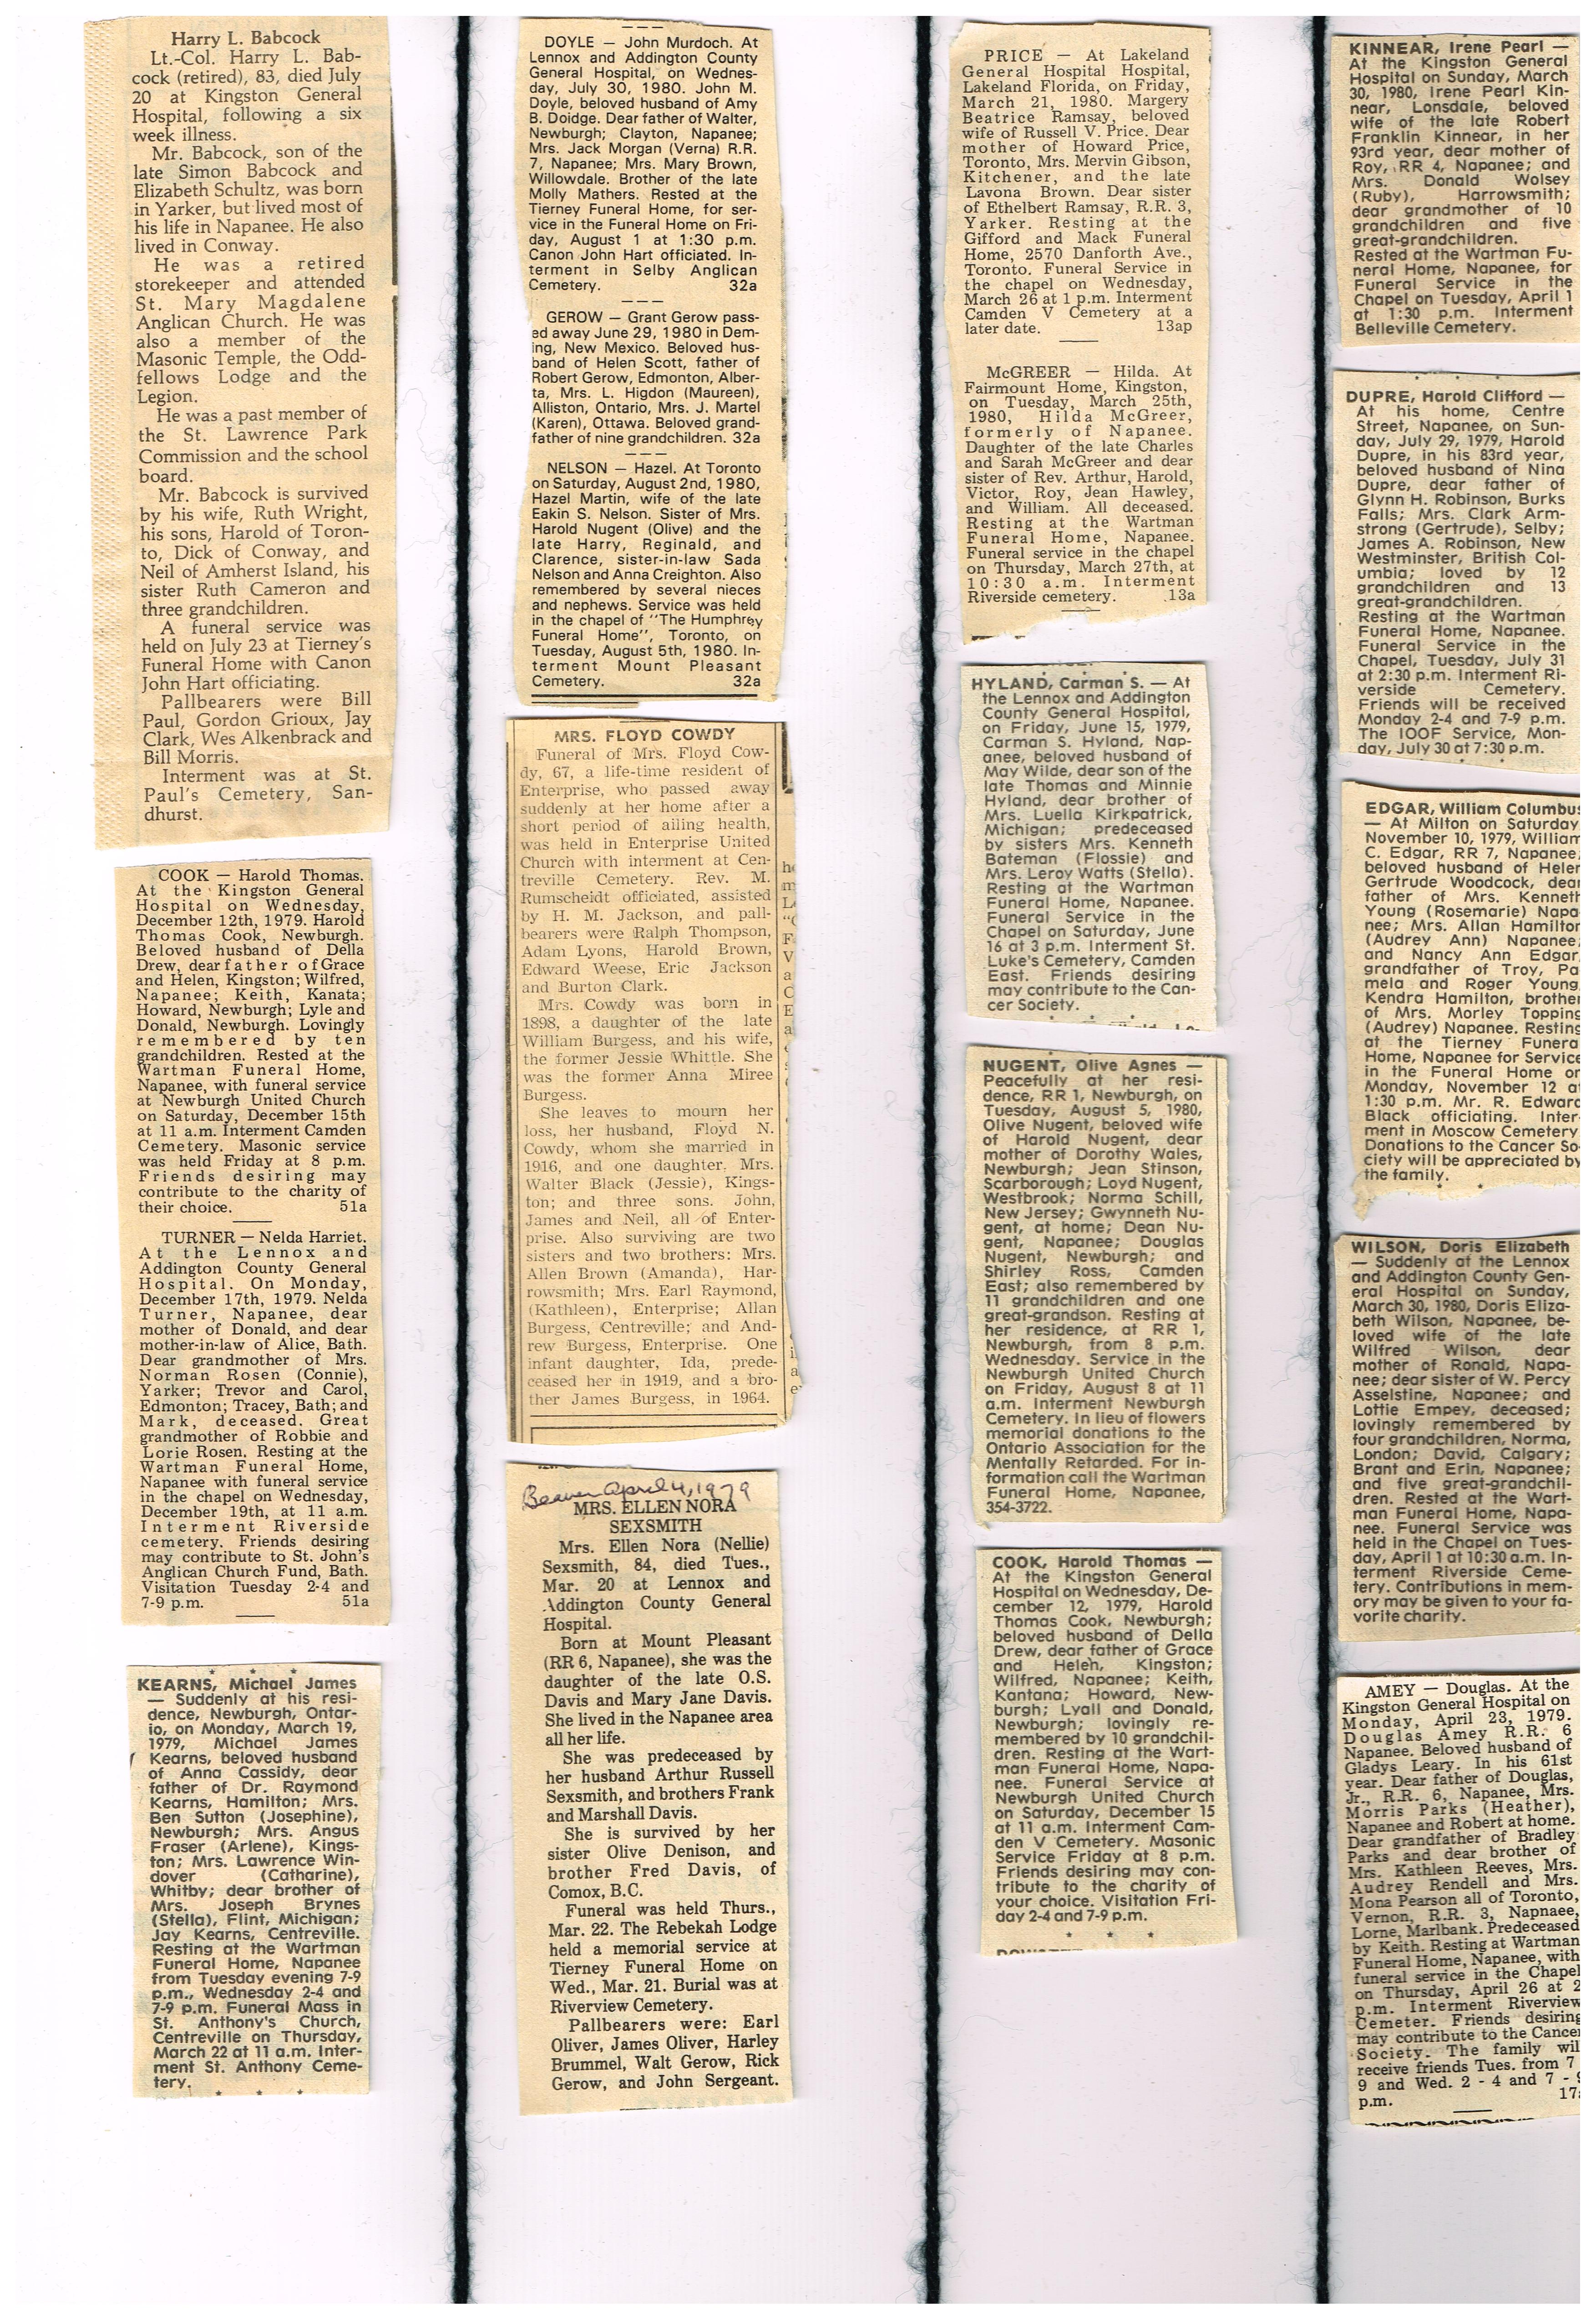 Harry L. Babcock
Lt.-Col. Harry L. Bab-
cock (retired), 83, died July
20 at Kingston General
Hospital, following a six
week illness.
Mr. Babcock, son of the
late Simon Babcock and
Elizabeth Schultz, was born
in Yarker, but lived most of
his life in Napanee. He also
lived in Conway.
He was a retired
storekeeper and attended
St. Mary Magdalene
Anglican Church. He was
also a member of the
Masonic Temple, the Odd-
fellows Lodge and the
Legion.
He was a past member of
the St. Lawrence Park
Commission and the school
board.
Mr. Babcock is survived
by his wife, Ruth Wright,
his sons, Harold of Toron-
to, Dick of Conway, and
Neil of Amherst Island, his
sister Ruth Cameron and
three grandchildren.
A funeral service was
held on July 23 at Tierney's
Funeral Home with Canon
John Hart officiating.
Pallbearers were Bill
Paul, Gordon Grioux, Jay
Clark, Wes Alkenbrack and
Bill Morris.
Interment was at St.
Paul's Cemetery, San-
dhurst.
COOK — Harold Thomas.
At the Kingston General
Hospital on Wednesday,
December 12th, 1979. Harold
Thomas Cook, Newburgh.
Beloved husband of Della
Drew, dear father of Grace
and Helen, Kingston; Wilfred,
Napanee; Keith, Kanata;
Howard, Newburgh; Lyle and
Donald, Newburgh. Lovingly
remembered by ten
grandchildren. Rested at the
Wartman Funeral Home,
Napanee, with funeral service
at Newburgh United Church
on Saturday, December 15th
at 11 a.m. Interment Camden
Cemetery. Masonic service
was held Friday at 8 p.m.
Friends desiring may
contribute to the charity of
their choice. 51a
TURNER — Nelda Harriet.
At the Lennox and
Addington County General
Hospital. On Monday,
December 17th, 1979. Nelda
Turner, Napanee, dear
mother of Donald, and dear
mother-in-law of Alice, Bath.
Dear grandmother of Mrs.
Norman Rosen (Connie),
Yarker; Trevor and Carol,
Edmonton; Tracey, Bath; and
Mark, deceased. Great
grandmother of Robbie and
Lorie Rosen. Resting at the
Wartman Funeral Home,
Napanee with funeral service
in the chapel on Wednesday,
December 19th, at 11 a.m.
Interment Riverside
cemetery. Friends desiring
may contribute to St. John's
Anglican Church Fund, Bath.
Visitation Tuesday 2-4 and
7-9 p.m. 51a
KEARNS, Michael James
— Suddenly at his resi-
dence, Newburgh, Ontar-
io, on Monday, March 19,
1979, Michael James
Kearns, beloved husband
of Anna Cassidy, dear
father of Dr. Raymond
Kearns, Hamilton; Mrs.
Ben Sutton (Josephine),
Newburgh; Mrs. Angus
Fraser (Arlene), Kings-
ton; Mrs. Lawrence Win-
dover (Catharine),
Whitby; dear brother of
Mrs. Joseph Brynes
(Stella), Flint, Michigan;
Jay Kearns, Centreville.
Resting at the Wartman
Funeral Home, Napanee
from Tuesday evening 7-9
p.m., Wednesday 2-4 and
7-9 p.m. Funeral Mass in
St. Anthony's Church,
Centreville on Thursday,
March 22 at 11 a.m. Inter-
ment St. Anthony Ceme-
tery.
DOYLE — John Murdoch. At
Lennox and Addington County
General Hospital, on Wednes-
day, July 30, 1980. John M.
Doyle, beloved husband of Amy
B. Doidge. Dear father of Walter,
Newburgh; Clayton, Napanee;
Mrs. Jack Morgan (Verna) R.R.
7, Napanee; Mrs. Mary Brown,
Willowdale. Brother of the late
Molly Mathers. Rested at the
Tierney Funeral Home, for ser-
vice in the Funeral Home on Fri-
day, August 1 at 1:30 p.m.
Canon John Hart officiated. In-
terment in Selby Anglican
Cemetery. 32a
GEROW — Grant Gerow pass-
ed away June 29, 1980 in Dem-
ing, New Mexico. Beloved hus-
band of Helen Scott, father of
Robert Gerow, Edmonton, Alber-
ta, Mrs. L. Higdon (Maureen),
Alliston, Ontario, Mrs. J. Martel
(Karen), Ottawa. Beloved grand-
father of nine grandchildren. 32a
NELSON — Hazel. At Toronto
on Saturday, August 2nd, 1980,
Hazel Martin, wife of the late
Eakin S. Nelson. Sister of Mrs.
Harold Nugent (Olive) and the
late Harry, Reginald, and
Clarence, sister-in-law Sada
Nelson and Anna Creighton. Also
remembered by several nieces
and nephews. Service was held
in the chapel of "The Humphrey
Funeral Home", Toronto, on
Tuesday, August 5th, 1980. In-
terment Mount Pleasant
Cemetery. 32a
MRS. FLOYD COWDY
Funeral of Mrs. Floyd Cow-
dy, 67, a life-time resident of
Enterprise, who passed away
suddenly at her home after a
short period of ailing health,
was held in Enterprise United
Church with interment at Cen-
treville Cemetery. Rev. M.
Rumscheidt officiated, assisted
by H. M. Jackson, and pall-
bearers were Ralph Thompson,
Adam Lyons, Harold Brown,
Edward Weese, Eric Jackson
and Burton Clark.
Mrs. Cowdy was born in
1898, a daughter of the late
William Burgess, and his wife,
the former Jessie Whittle. She
was the former Anna Miree
Burgess.
She leaves to mourn her
loss, her husband, Floyd N.
Cowdy, whom she married in
1916, and one daughter, Mrs.
Walter Black (Jessie), Kings-
ton; and three sons. John,
James and Neil, all of Enter-
prise. Also surviving are two
sisters and two brothers: Mrs.
Allen Brown (Amanda), Har-
rowsmith; Mrs. Earl Raymond,
(Kathleen), Enterprise; Allan
Burgess, Centreville; and And-
rew Burgess, Enterprise. One
infant daughter, Ida, prede-
ceased her in 1919, and a bro-
ther James Burgess, in 1964.
Beaver April 4, 1979
MRS. ELLEN NORA
SEXSMITH
Mrs. Ellen Nora (Nellie)
Sexsmith, 84, died Tues.,
Mar. 20 at Lennox and
Addington County General
Hospital.
Born at Mount Pleasant
(RR 6, Napanee), she was the
daughter of the late O.S.
Davis and Mary Jane Davis.
She lived in the Napanee area
all her life.
She was predeceased by
her husband Arthur Russell
Sexsmith, and brothers Frank
and Marshall Davis.
She is survived by her
sister Olive Denison, and
brother Fred Davis, of
Comox, B.C.
Funeral was held Thurs.,
Mar. 22. The Rebekah Lodge
held a memorial service at
Tierney Funeral Home on
Wed., Mar. 21. Burial was at
Riverview Cemetery.
Pallbearers were: Earl
Oliver, James Oliver, Harley
Brummel, Walt Gerow, Rick
Gerow, and John Sergeant.
PRICE — At Lakeland
General Hospital Hospital,
Lakeland Florida, on Friday,
March 21, 1980. Margery
Beatrice Ramsay, beloved
wife of Russell V. Price. Dear
mother of Howard Price,
Toronto, Mrs. Mervin Gibson,
Kitchener, and the late
Lavona Brown. Dear sister
of Ethelbert Ramsay, R.R. 3,
Yarker. Resting at the
Gifford and Mack Funeral
Home, 2570 Danforth Ave.,
Toronto. Funeral Service in
the chapel on Wednesday,
March 26 at 1 p.m. Interment
Camden V Cemetery at a
later date. 13ap
McGREER — Hilda. At
Fairmount Home, Kingston,
on Tuesday, March 25th,
1980, Hilda McGreer,
formerly of Napanee.
Daughter of the late Charles
and Sarah McGreer and dear
sister of Rev. Arthur, Harold,
Victor, Roy, Jean Hawley,
and William. All deceased.
Resting at the Wartman
Funeral Home, Napanee.
Funeral service in the chapel
on Thursday, March 27th, at
10:30 a.m. Interment
Riverside cemetery. 13a
HYLAND, Carman S. — At
the Lennox and Addington
County General Hospital,
on Friday, June 15, 1979,
Carman S. Hyland, Nap-
anee, beloved husband of
May Wilde, dear son of the
late Thomas and Minnie
Hyland, dear brother of
Mrs. Luella Kirkpatrick,
Michigan; predeceased
by sisters Mrs. Kenneth
Bateman (Flossie) and
Mrs. Leroy Watts (Stella).
Resting at the Wartman
Funeral Home, Napanee.
Funeral Service in the
Chapel on Saturday, June
16 at 3 p.m. Interment St.
Luke's Cemetery, Camden
East. Friends desiring
may contribute to the Can-
cer Society.
NUGENT, Olive Agnes —
Peacefully at her resi-
dence, RR 1, Newburgh, on
Tuesday, August 5, 1980,
Olive Nugent, beloved wife
of Harold Nugent, dear
mother of Dorothy Wales,
Newburgh; Jean Stinson,
Scarborough; Loyd Nugent,
Westbrook; Norma Schill,
New Jersey; Gwynneth Nu-
gent, at home; Dean Nu-
gent, Napanee; Douglas
Nugent, Newburgh; and
Shirley Ross, Camden
East; also remembered by
11 grandchildren and one
great-grandson. Resting at
her residence, at RR 1,
Newburgh, from 8 p.m.
Wednesday. Service in the
Newburgh United Church
on Friday, August 8 at 11
a.m. Interment Newburgh
Cemetery. In lieu of flowers
memorial donations to the
Ontario Association for the
Mentally Retarded. For in-
formation call the Wartman
Funeral Home, Napanee,
354-3722.
COOK, Harold Thomas —
At the Kingston General
Hospital on Wednesday, De-
cember 12, 1979, Harold
Thomas Cook, Newburgh;
beloved husband of Della
Drew, dear father of Grace
and Heleh, Kingston;
Wilfred, Napanee; Keith,
Kantana; Howard, New-
burgh; Lyall and Donald,
Newburgh; lovingly re-
membered by 10 grandchil-
dren. Resting at the Wart-
man Funeral Home, Napa-
nee. Funeral Service at
Newburgh United Church
on Saturday, December 15
at 11 a.m. Interment Cam-
den V Cemetery. Masonic
Service Friday at 8 p.m.
Friends desiring may con-
tribute to the charity of
your choice. Visitation Fri-
day 2-4 and 7-9 p.m.
KINNEAR, Irene Pearl —
At the Kingston General
Hospital on Sunday, March
30, 1980, Irene Pearl Kin-
near, Lonsdale, beloved
wife of the late Robert
Franklin Kinnear, in her
93rd year, dear mother of
Roy, RR 4, Napanee; and
Mrs. Donald Wolsey
(Ruby), Harrowsmith;
dear grandmother of 10
grandchildren and five
great-grandchildren.
Rested at the Wartman Fu-
neral Home, Napanee, for
Funeral Service in the
Chapel on Tuesday, April 1
at 1:30 p.m. Interment
Belleville Cemetery.
DUPRE, Harold Clifford —
At his home, Centre
Street, Napanee, on Sun-
day, July 29, 1979, Harold
Dupre, in his 83rd year,
beloved husband of Nina
Dupre, dear father of
Glynn H. Robinson, Burks
Falls; Mrs. Clark Arm-
strong (Gertrude), Selby;
James A. Robinson, New
Westminster, British Col-
umbia; loved by 12
grandchildren and 13
great-grandchildren.
Resting at the Wartman
Funeral Home, Napanee.
Funeral Service in the
Chapel, Tuesday, July 31
at 2:30 p.m. Interment Ri-
verside Cemetery.
Friends will be received
Monday 2-4 and 7-9 p.m.
The IOOF Service, Mon-
day, July 30 at 7:30 p.m.
EDGAR, William Columbus
— At Milton on Saturday
November 10, 1979, William
C. Edgar, RR 7, Napanee;
beloved husband of Helen
Gertrude Woodcock, dear
father of Mrs. Kenneth
Young (Rosemarie) Napa-
nee; Mrs. Allan Hamilton
(Audrey Ann) Napanee;
and Nancy Ann Edgar,
grandfather of Troy, Pa-
mela and Roger Young,
Kendra Hamilton, brother
of Mrs. Morley Topping
(Audrey) Napanee. Resting
at the Tierney Funera
Home, Napanee for Service
in the Funeral Home on
Monday, November 12 at
1:30 p.m. Mr. R. Edward
Black officiating. Inter-
ment in Moscow Cemetery
Donations to the Cancer So-
ciety will be appreciated by
the family.
WILSON, Doris Elizabeth
— Suddenly at the Lennox
and Addington County Gen-
eral Hospital on Sunday,
March 30, 1980, Doris Eliza-
beth Wilson, Napanee, be-
loved wife of the late
Wilfred Wilson, dear
mother of Ronald, Napa-
nee; dear sister of W. Percy
Asselstine, Napanee; and
Lottie Empey, deceased;
lovingly remembered by
four grandchildren, Norma,
London; David, Calgary;
Brant and Erin, Napanee;
and five great-grandchil-
dren. Rested at the Wart-
man Funeral Home, Napa-
nee. Funeral Service was
held in the Chapel on Tues-
day, April 1 at 10:30 a.m. In-
terment Riverside Ceme-
tery. Contributions in mem-
ory may be given to your fa-
vorite charity.
AMEY — Douglas. At the
Kingston General Hospital on
Monday, April 23, 1979.
Douglas Amey R.R. 6
Napanee. Beloved husband of
Gladys Leary. In his 61st
year. Dear father of Douglas,
Jr., R.R. 6, Napanee, Mrs.
Morris Parks (Heather),
Napanee and Robert at home.
Dear grandfather of Bradley
Parks and dear brother of
Mrs. Kathleen Reeves, Mrs.
Audrey Rendell and Mrs.
Mona Pearson all of Toronto,
Vernon, R.R. 3, Napnaee,
Lorne, Marlbank. Predeceased
by Keith. Resting at Wartman
Funeral Home, Napanee, with
funeral service in the Chapel
on Thursday, April 26 at 2
p.m. Interment Riverview
Cemeter. Friends desiring
may contribute to the Cancer
Society. The family wil
receive friends Tues. from 7
9 and Wed. 2 - 4 and 7 - 9
p.m. 17